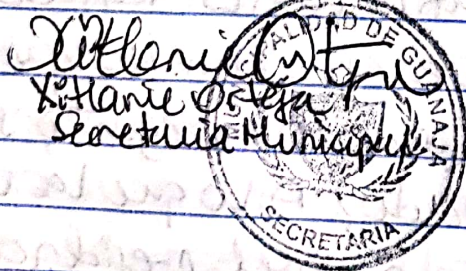 Xitlanie Ortega
Xitlanie Ortega
Secretaria Municipal
MUNICIPALIDAD DE GUANAJA
SECRETARIA